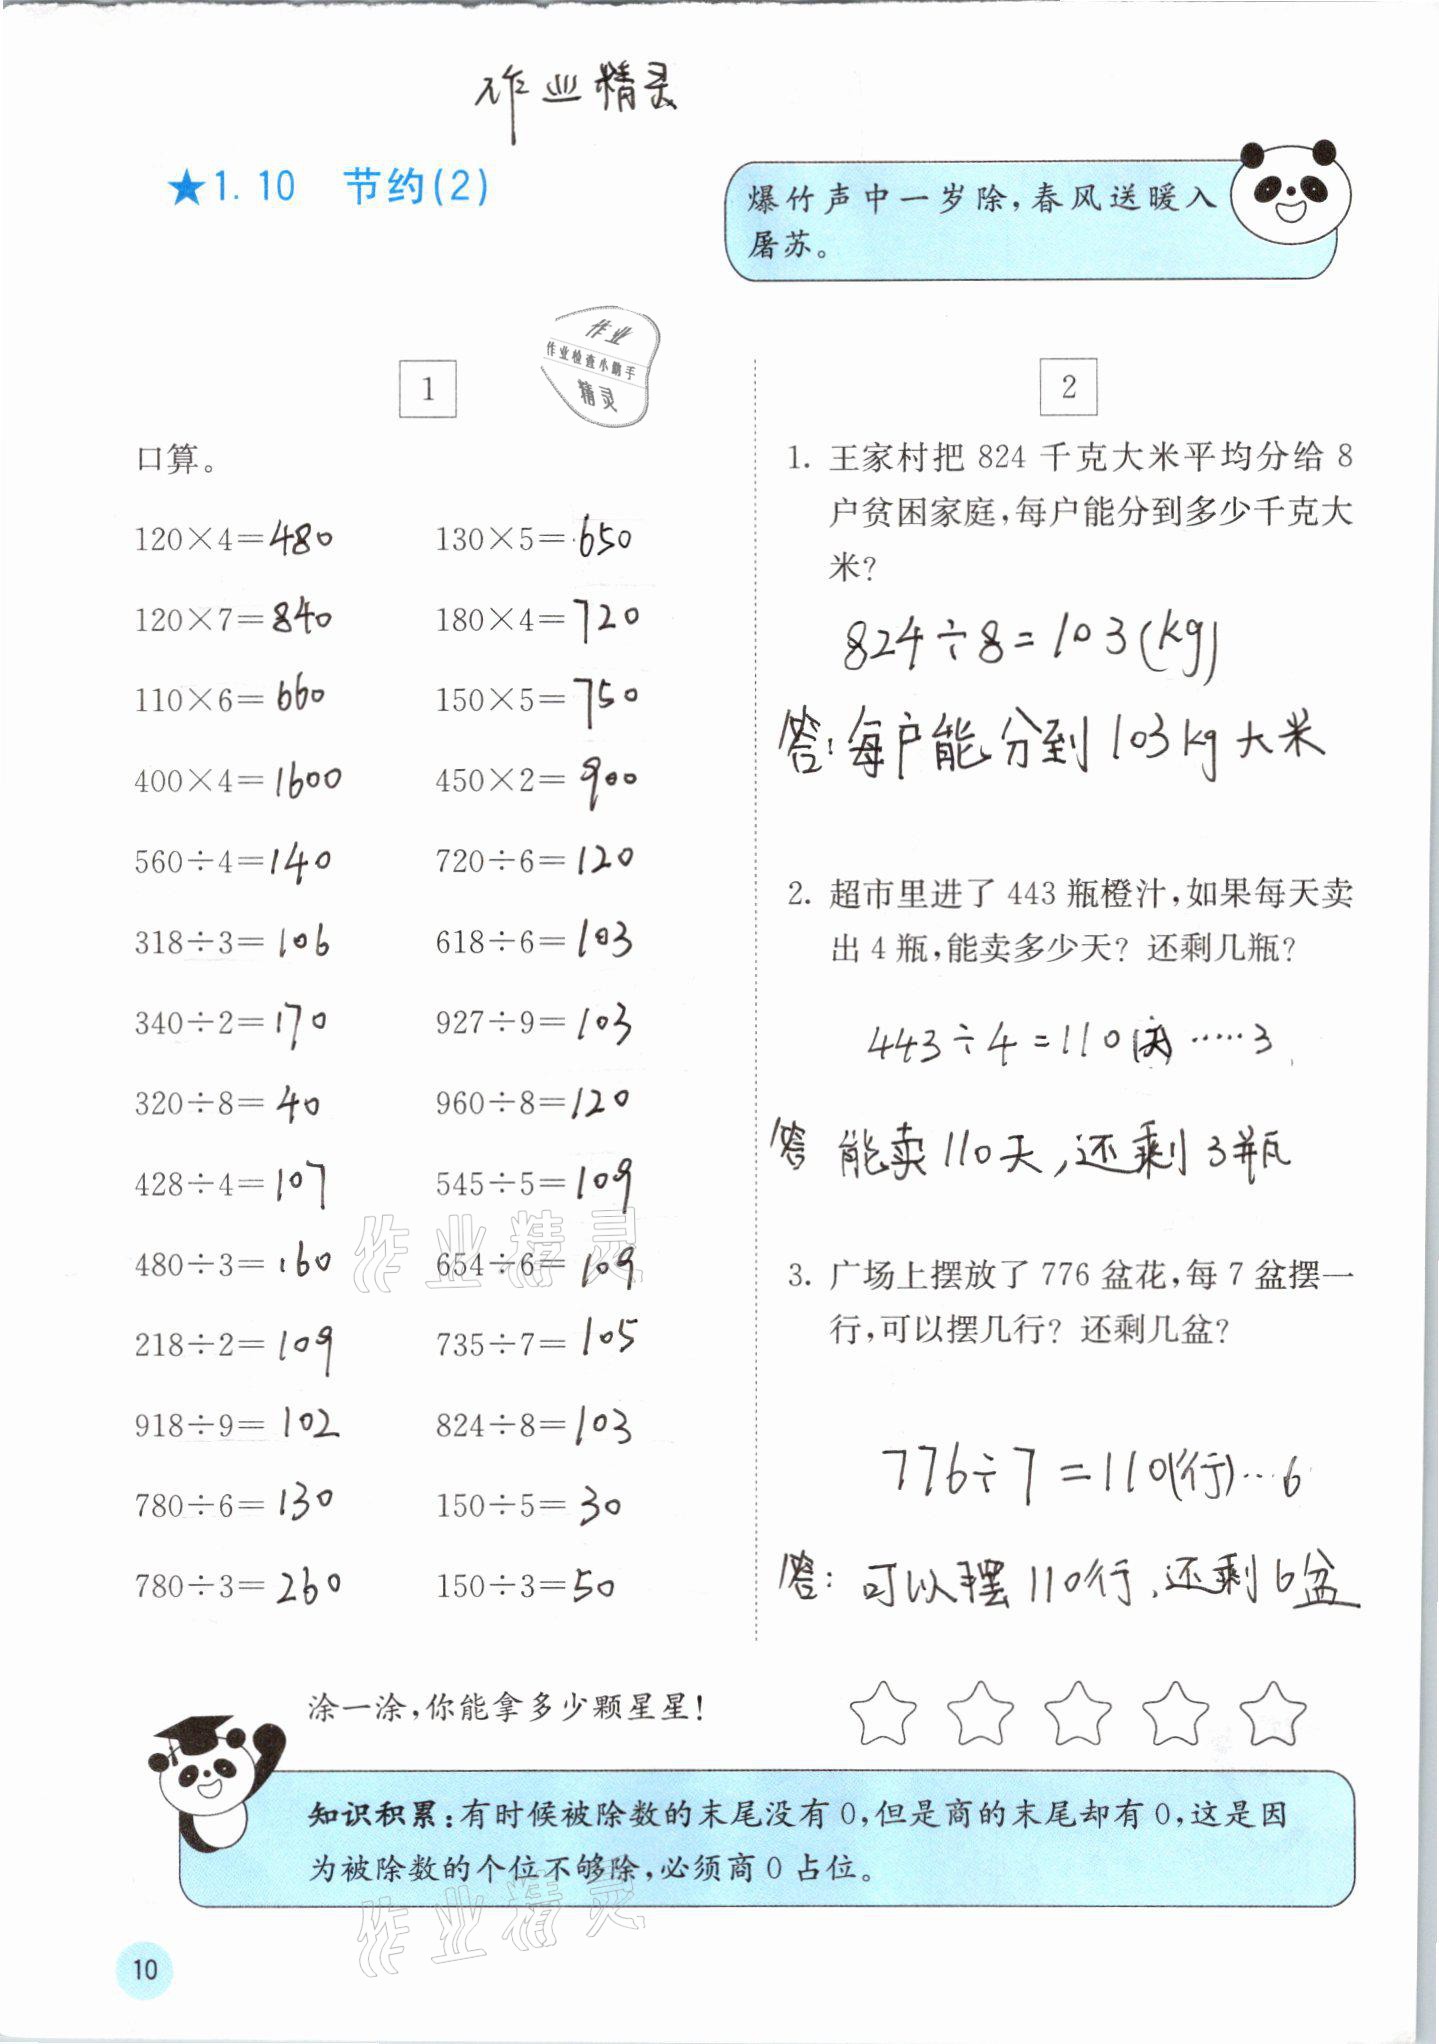 作业精灵
★1.10 节约(2)
爆竹声中一岁除,春风送暖入
屠苏。
作业
作业检查小助手
精灵
1
口算。
120×4=480 130×5=650
120×7=840 180×4=720
110×6=660 150×5=750
400×4=1600 450×2=900
560÷4=140 720÷6=120
318÷3=106 618÷6=103
340÷2=170 927÷9=103
320÷8=40 960÷8=120
428÷4=107 545÷5=109
480÷3=160 654÷6=109
218÷2=109 735÷7=105
918÷9=102 824÷8=103
780÷6=130 150÷5=30
780÷3=260 150÷3=50
作业精灵
2
1. 王家村把 824 千克大米平均分给 8
户贫困家庭,每户能分到多少千克大
米?
824÷8=103(kg)
答:每户能分到103kg大米
2. 超市里进了 443 瓶橙汁,如果每天卖
出 4 瓶,能卖多少天? 还剩几瓶?
443÷4=110(天)……3
答 能卖110天,还剩3瓶
3. 广场上摆放了 776 盆花,每 7 盆摆一
行,可以摆几行? 还剩几盆?
776÷7=110(行)…6
答:可以摆110行,还剩6盆
涂一涂,你能拿多少颗星星!
知识积累:有时候被除数的末尾没有 0,但是商的末尾却有 0,这是因
为被除数的个位不够除,必须商 0 占位。
作业精灵
10